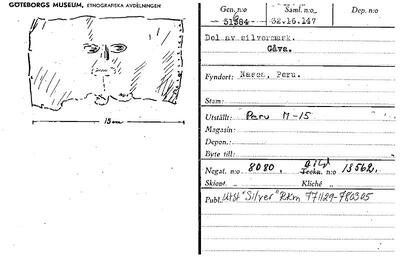 GÖTEBORGS MUSEUM, ETNOGRAFISKA AVDELNINGEN
15 cm
Gen. n:o Saml. n:o Dep. n:o
51384 32.16.147
Del av silvermask.
Gåva.
Fyndort: Nasca, Peru.
Stam:
Utställt: Peru M-15
Magasin:
Depon.:
Byte till:
Negat. n:o 8080, Teckn. n:o 13562.
Skiopt. „ Kliché „
Publ. Utst "Silver" RKM 771129-780305